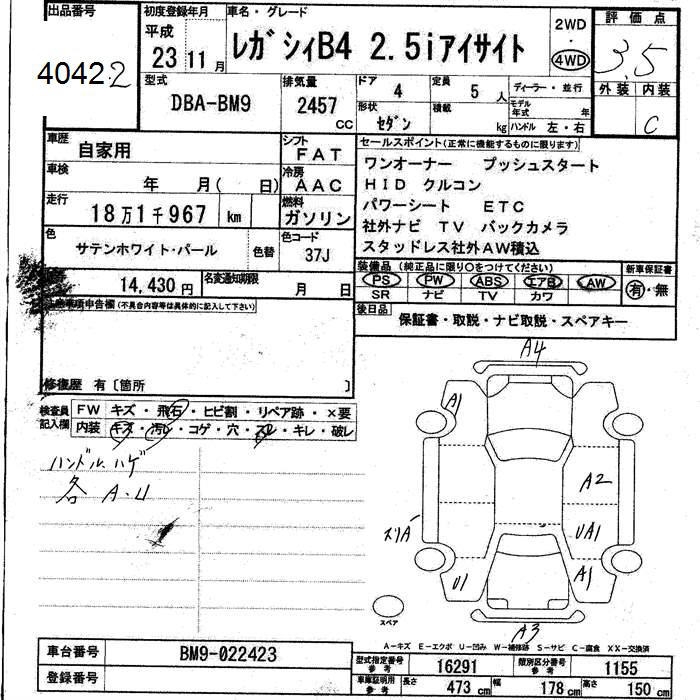 出品番号
40422
初度登録年月
平成
23 11月
車名・グレード
レガシィB4 2.5iアイサイト
2WD
・
4WD
評価点
3.5
外装 内装
C
型式
DBA-BM9
排気量
2457
CC
ドア
4
定員
5人
ディーラー・並行
形状
セダン
積載
kg
モデル年式 年
ハンドル 左・右
車歴
自家用
シフト
FAT
車検
年 月( 日)
冷房
AAC
走行
18万1千967 km
燃料
ガソリン
色
サテンホワイト・パール
色替
色コード
37J
14,430円
名変通知期限
月 日
セールスポイント(正常に機能するものに限ります)
ワンオーナー プッシュスタート
HID クルコン
パワーシート ETC
社外ナビ TV バックカメラ
スタッドレス社外AW積込
装備品(純正品に限り○をつけてください)
PS PW ABS エアB AW
SR ナビ TV カワ
新車保証書
有・無
後日品
保証書・取説・ナビ取説・スペアキー
注意事項申告欄(不具合内容等は具体的に記入して下さい)
修復歴 有〔箇所 〕
検査員
記入欄
FW キズ・飛石・ヒビ割・リペア跡・×要
内装 キズ・汚レ・コゲ・穴・スレ・キレ・破レ
ハンドルハゲ
各 A・U
A4
A1
A2
UA1
A1
U1
A3
スペア
A-キズ E-エクボ U-凹み W-補修跡 S-サビ C-腐食 XX-交換済
車台番号
BM9-022423
登録番号
型式指定番号
参考
16291
類別区分番号
参考
1155
車庫証明用
参考
長さ 473cm 幅 178cm 高さ 150cm